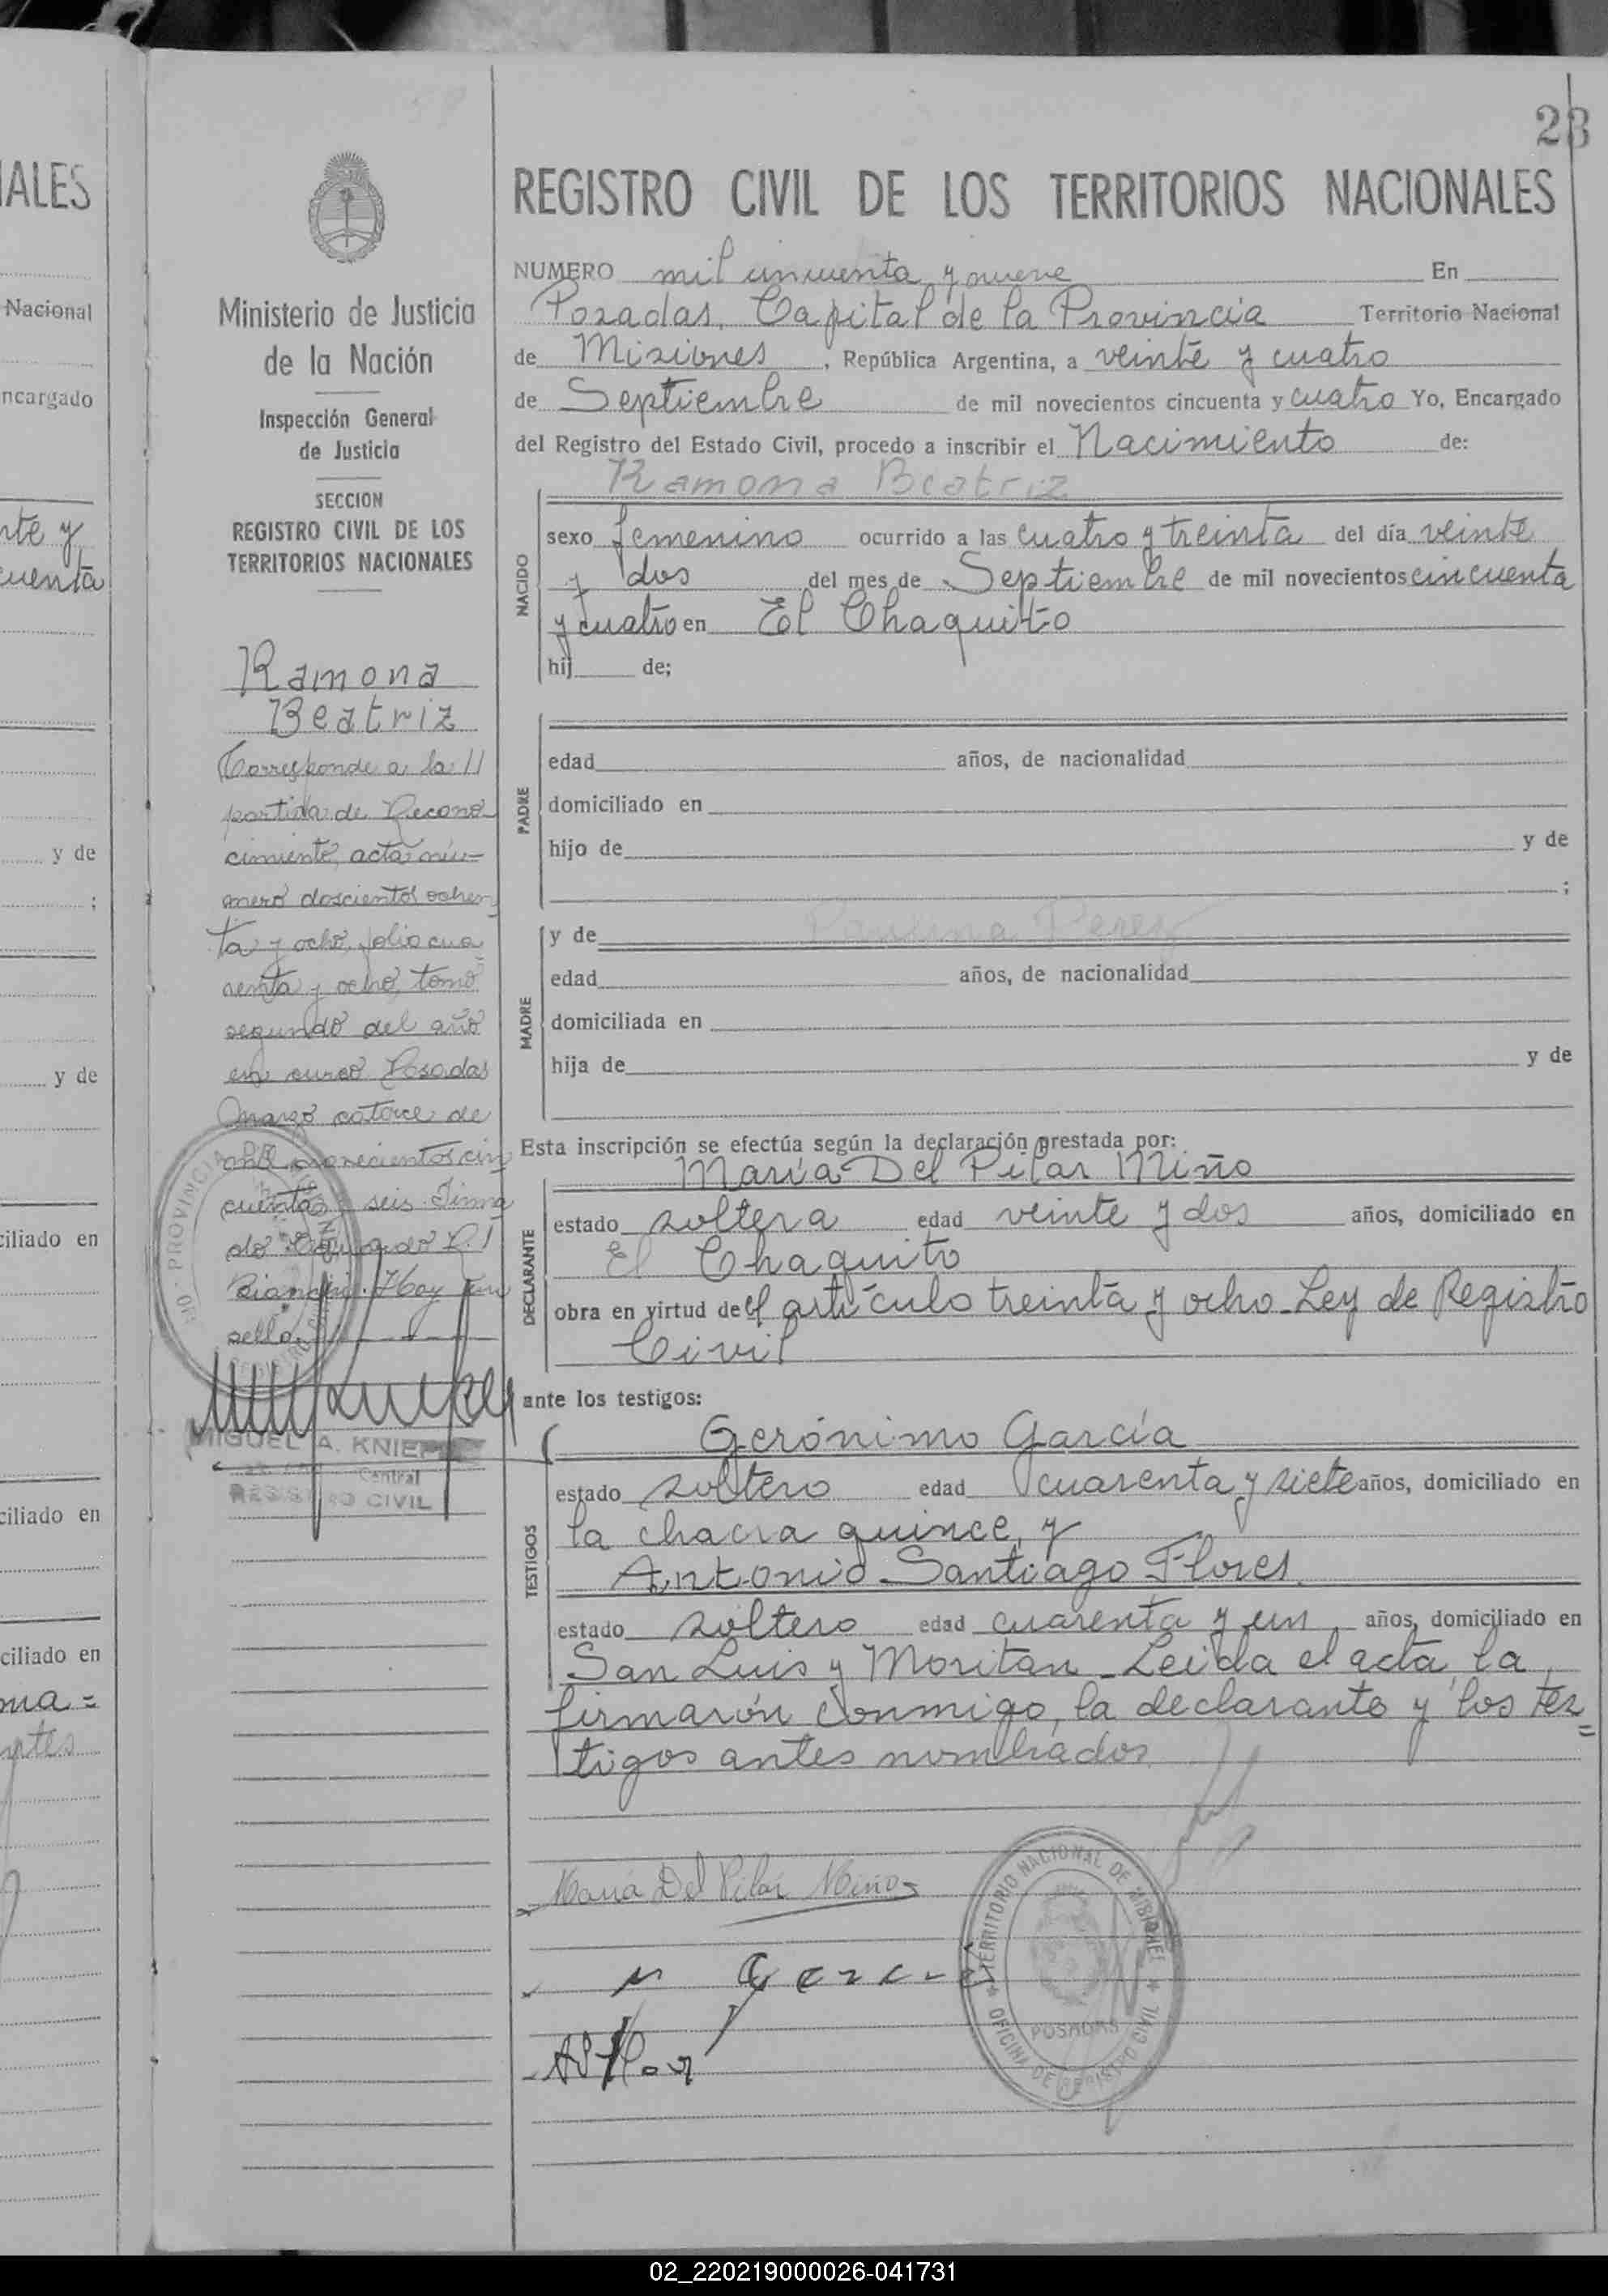 23
REGISTRO CIVIL DE LOS TERRITORIOS NACIONALES
NUMERO mil cincuenta y nueve En
Posadas, Capital de la Provincia Territorio Nacional
de Misiones, República Argentina, a veinte y cuatro
de Septiembre de mil novecientos cincuenta y cuatro Yo, Encargado
del Registro del Estado Civil, procedo a inscribir el Nacimiento de:
Ramona Beatriz
NACIDO
sexo femenino ocurrido a las cuatro y treinta del día veinte
y dos del mes de Septiembre de mil novecientos cincuenta
y cuatro en El Chaquito
hij de;
PADRE
edad años, de nacionalidad
domiciliado en
hijo de y de
;
MADRE
y de Paulina Perez
edad años, de nacionalidad
domiciliada en
hija de y de
Esta inscripción se efectúa según la declaración prestada por:
María Del Pilar Miño
DECLARANTE
estado soltera edad veinte y dos años, domiciliado en
El Chaquito
obra en virtud del artículo treinta y ocho - Ley de Registro
Civil
ante los testigos:
TESTIGOS
Gerónimo García
estado soltero edad cuarenta y siete años, domiciliado en
la chacra quince, y
Antonio Santiago Flores
estado soltero edad cuarenta y un años, domiciliado en
San Luis y Moritan - Leida el acta, la
firmarón conmigo, la declarante y los tes=
tigos antes nombrados
María Del Pilar Miño
TERRITORIO NACIONAL DE MISIONES
POSADAS
OFICINA DE REGISTRO CIVIL
Ministerio de Justicia
de la Nación
Inspección General
de Justicia
SECCION
REGISTRO CIVIL DE LOS
TERRITORIOS NACIONALES
Ramona
Beatriz
Corresponde a la
partida de Recono
cimiento, acta nú-
mero doscientos ochen
ta y ocho, folio cua
renta y ocho, tomo
segundo del año
en curso. Posadas
marzo catorce de
mil novecientos cin
cuenta y seis. Firma
do
Bianchi. Hay un
sello.
PROVINCIA DE
MIGUEL A. KNIE
Central
REGISTRO CIVIL
IALES
Nacional
ncargado
nte y
cuenta
y de
;
y de
ciliado en
ciliado en
ciliado en
02_220219000026-041731